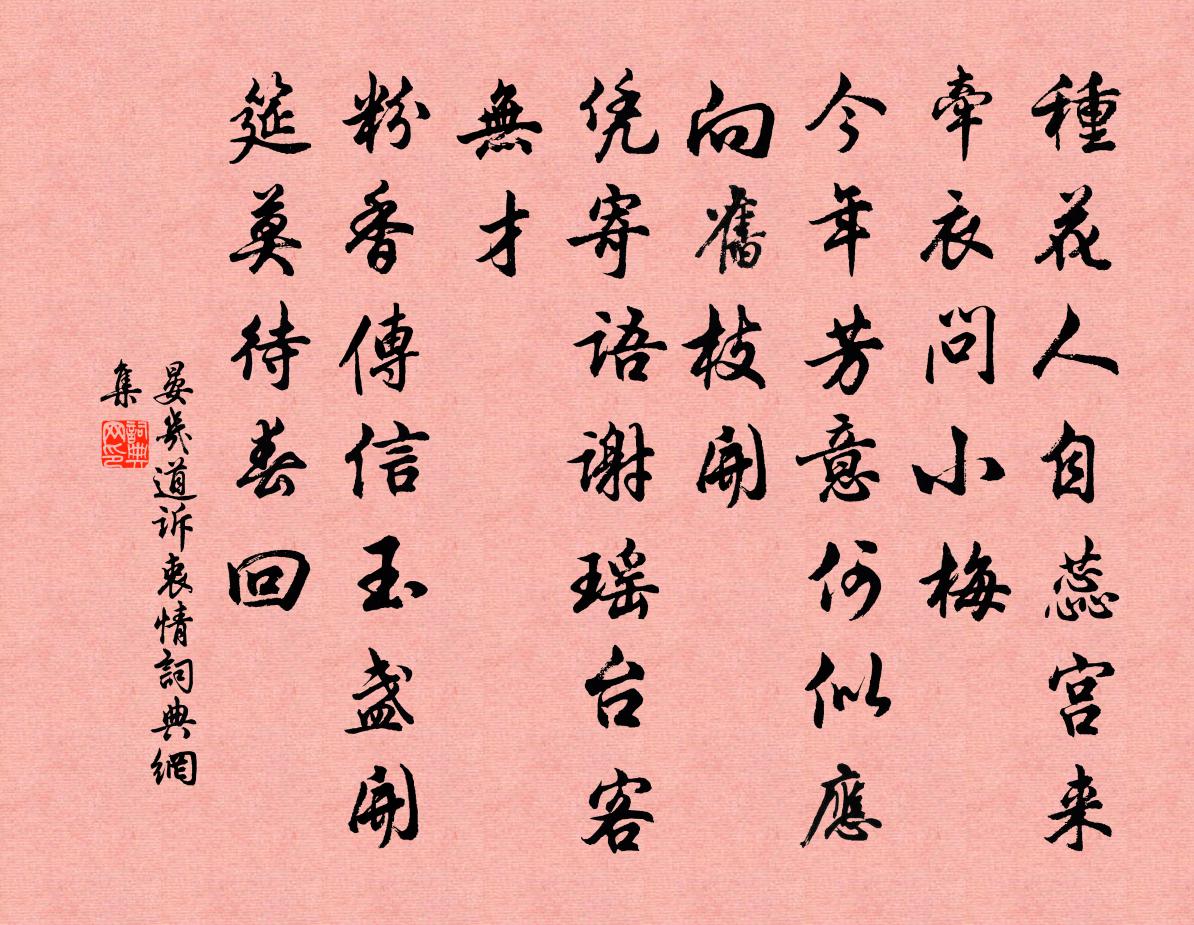 種花人自蕊宮来
牽衣問小梅
今年芳意何似應
向舊枝開
凭寄語谢瑶台客
無才
粉香傳信玉盏開
筵莫待春回
晏幾道诉衷情詞典網
集
詞典网印